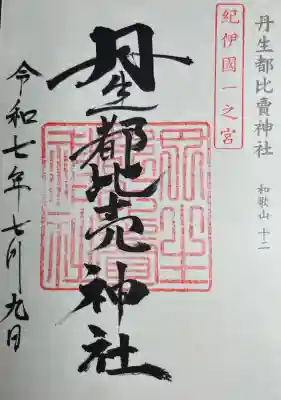 丹生都比賣神社
和歌山 十二
紀伊國一之宮
丹生都比売神社
令和七年七月九日